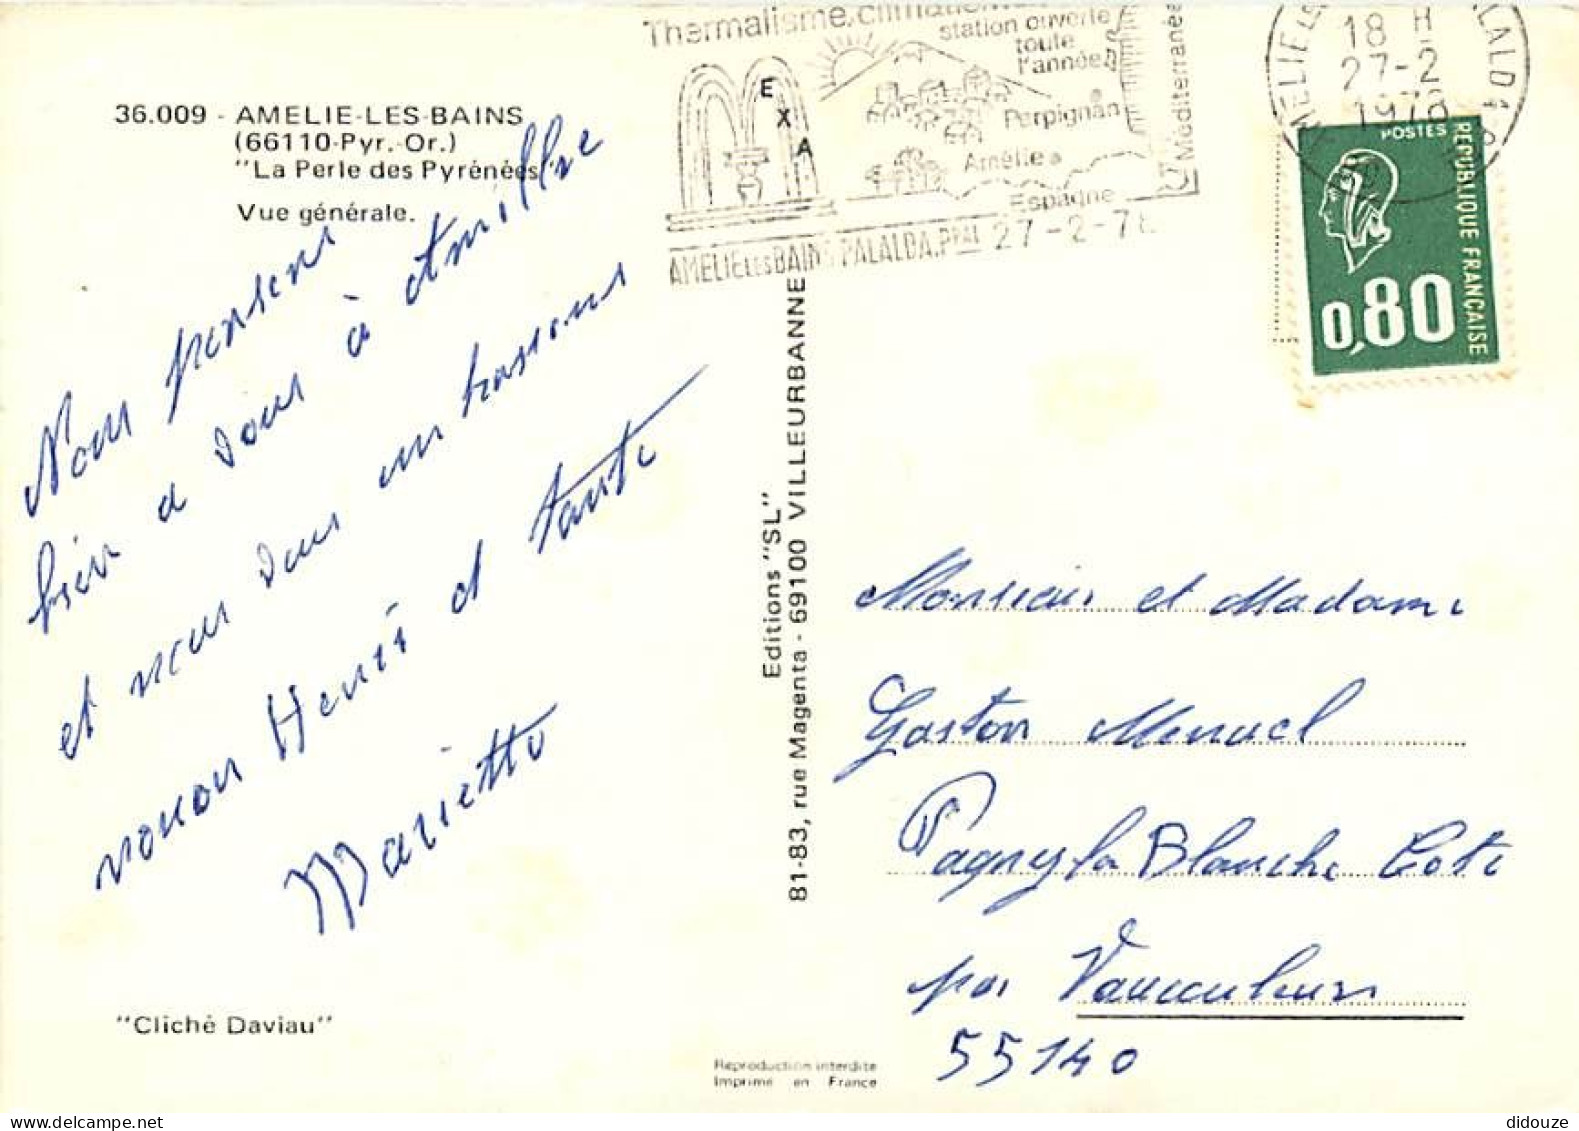 Thermalisme, climatisme
station ouverte
toute
l'année
E
X
A
Perpignan
Amélie
Espagne
Méditerranée
AMELIE LES BAINS PALALDA.PPAL 27-2-78
18 H
27-2
1978
POSTES
REPUBLIQUE FRANÇAISE
0,80
36.009 - AMELIE-LES-BAINS
(66110-Pyr.-Or.)
"La Perle des Pyrénées"
Vue générale.
Nous pensons
bien a vous à
et nous vous
nonon Henri et tante
Marietto
"Cliché Daviau"
Editions "SL"
81-83, rue Magenta - 69100 VILLEURBANNE
Reproduction interdite
Imprimé en France
Monsieur et Madame
Gaston Menuel
Pagny la Blanche Cote
par Vaucouleurs
55140
didouze